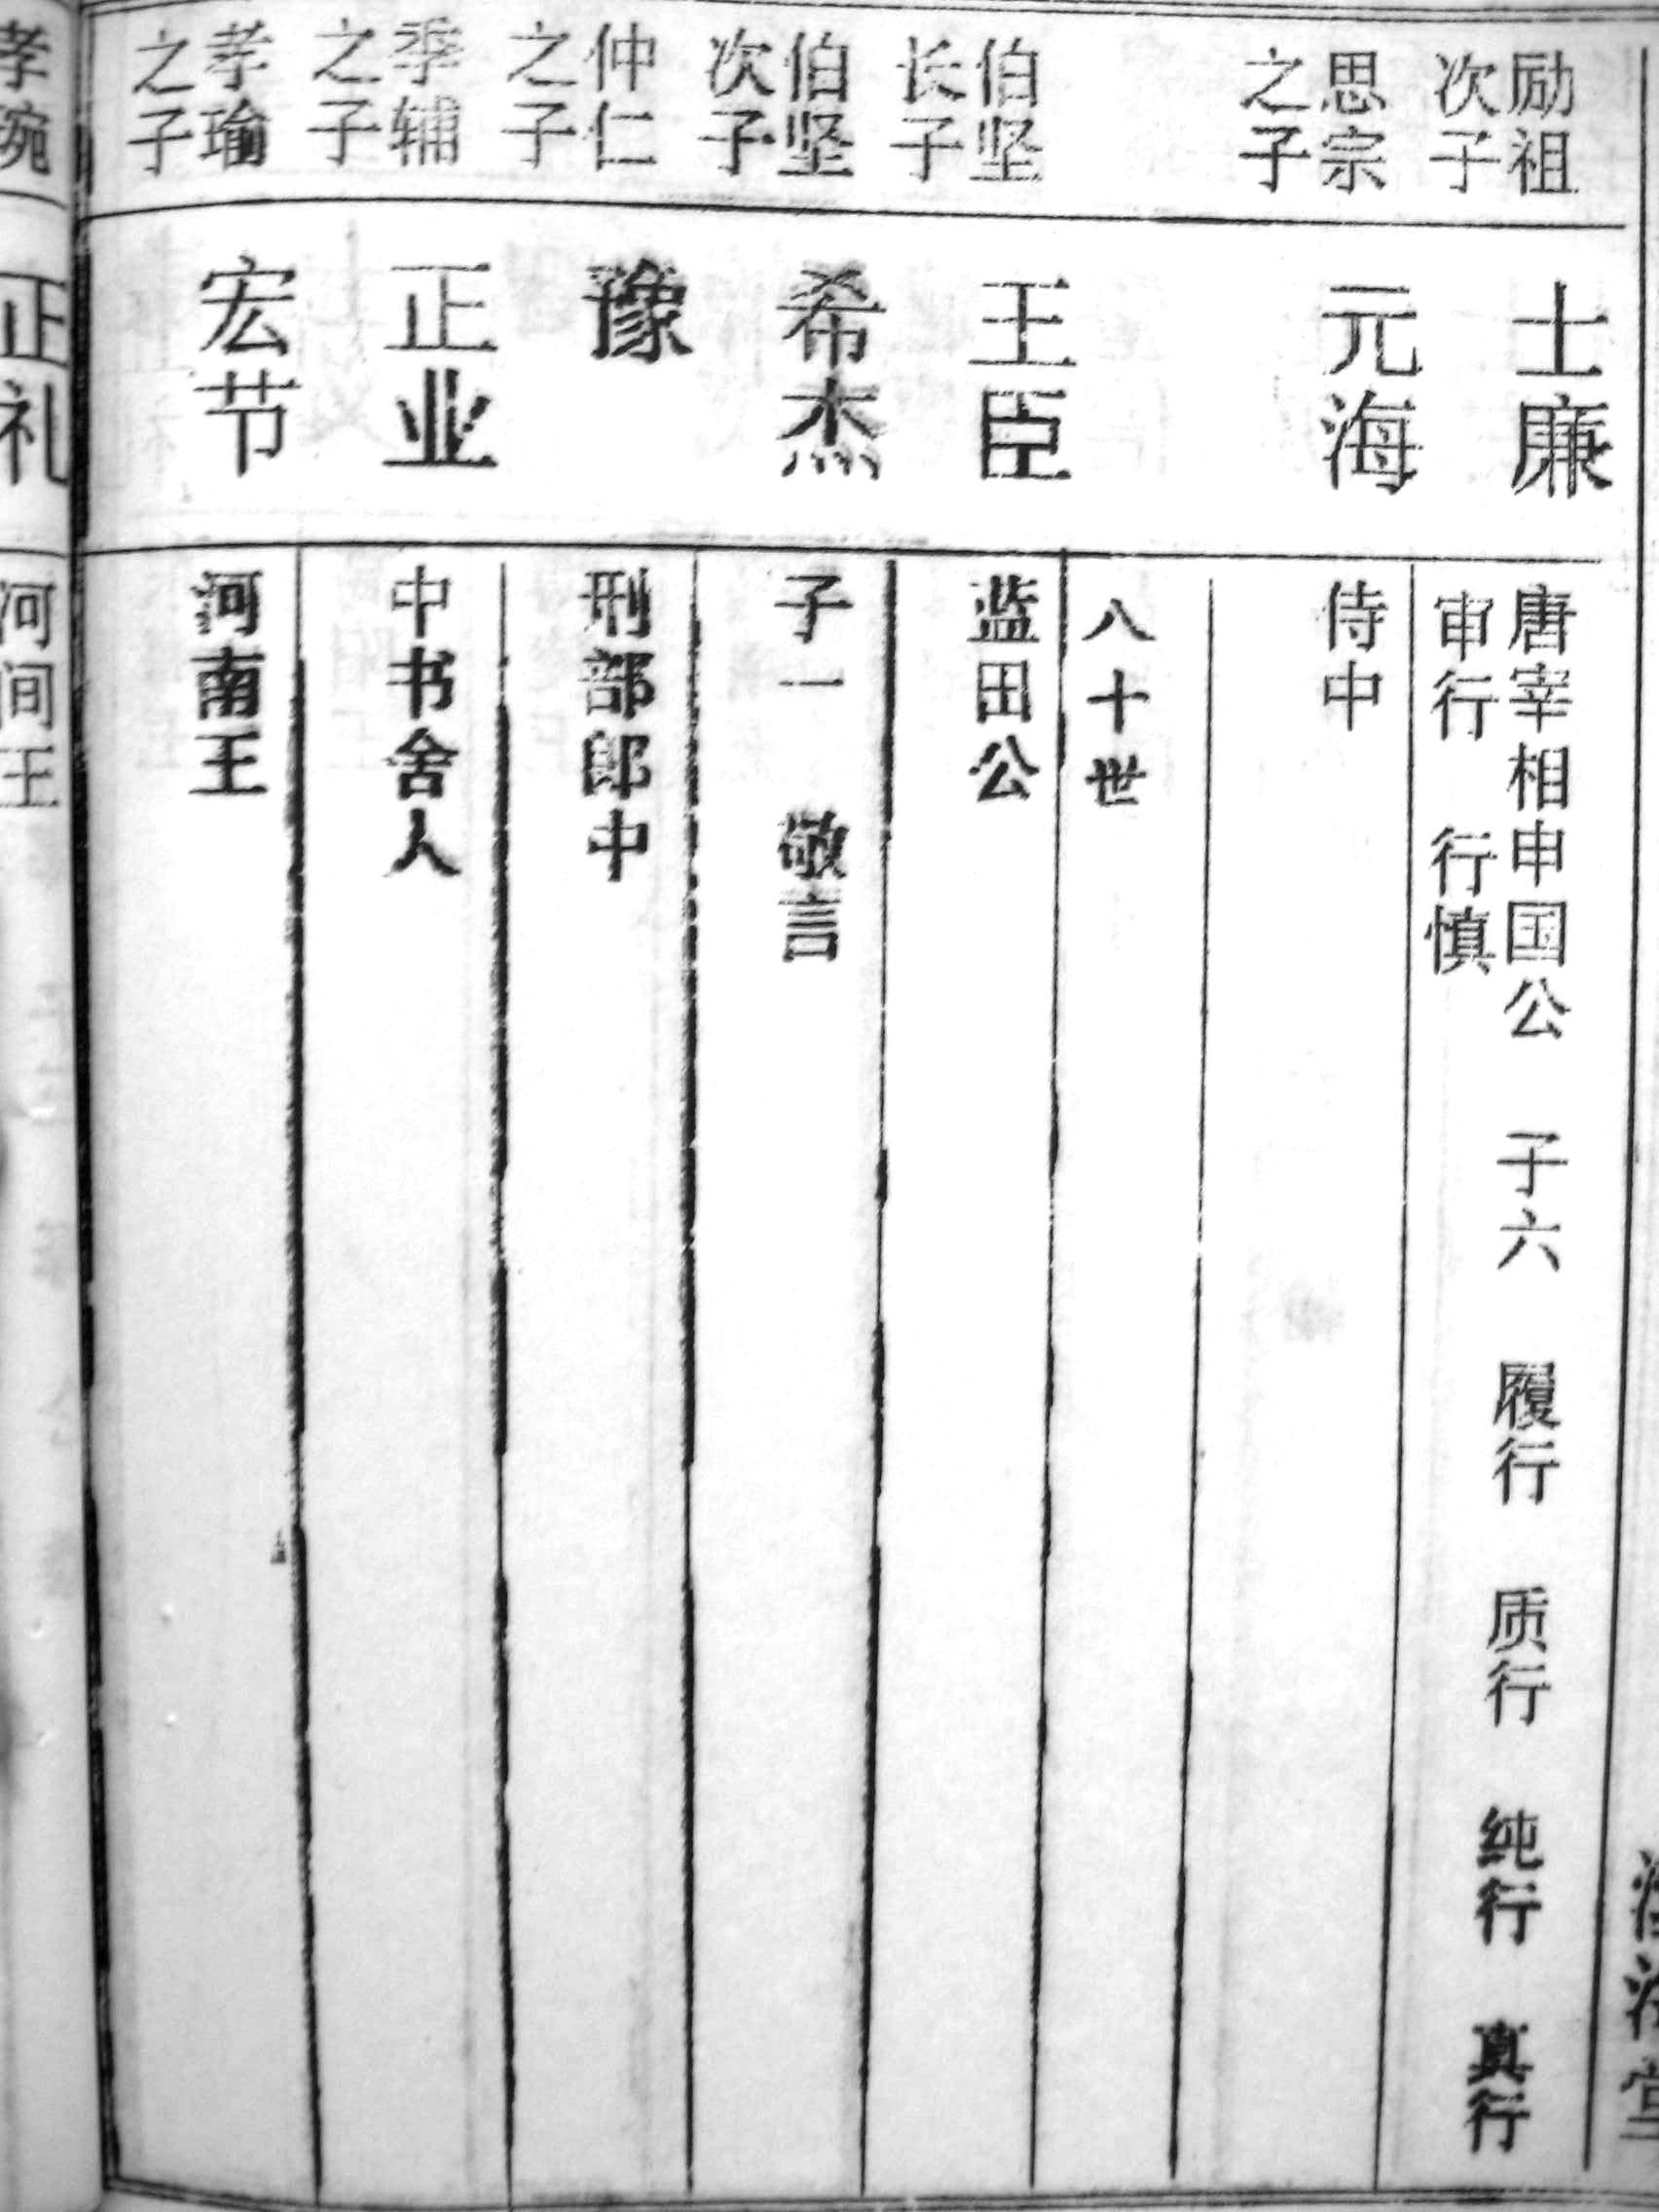 励祖
次子
士廉
唐宰相申国公 子六 履行 质行 纯行 真行
审行 行慎
思宗
之子
元海
侍中
八十世
伯坚
长子
王臣
蓝田公
伯坚
次子
希杰
子一 敬言
仲仁
之子
豫
刑部郎中
季辅
之子
正业
中书舍人
孝瑜
之子
宏节
河南王
孝琬
正礼
河间王